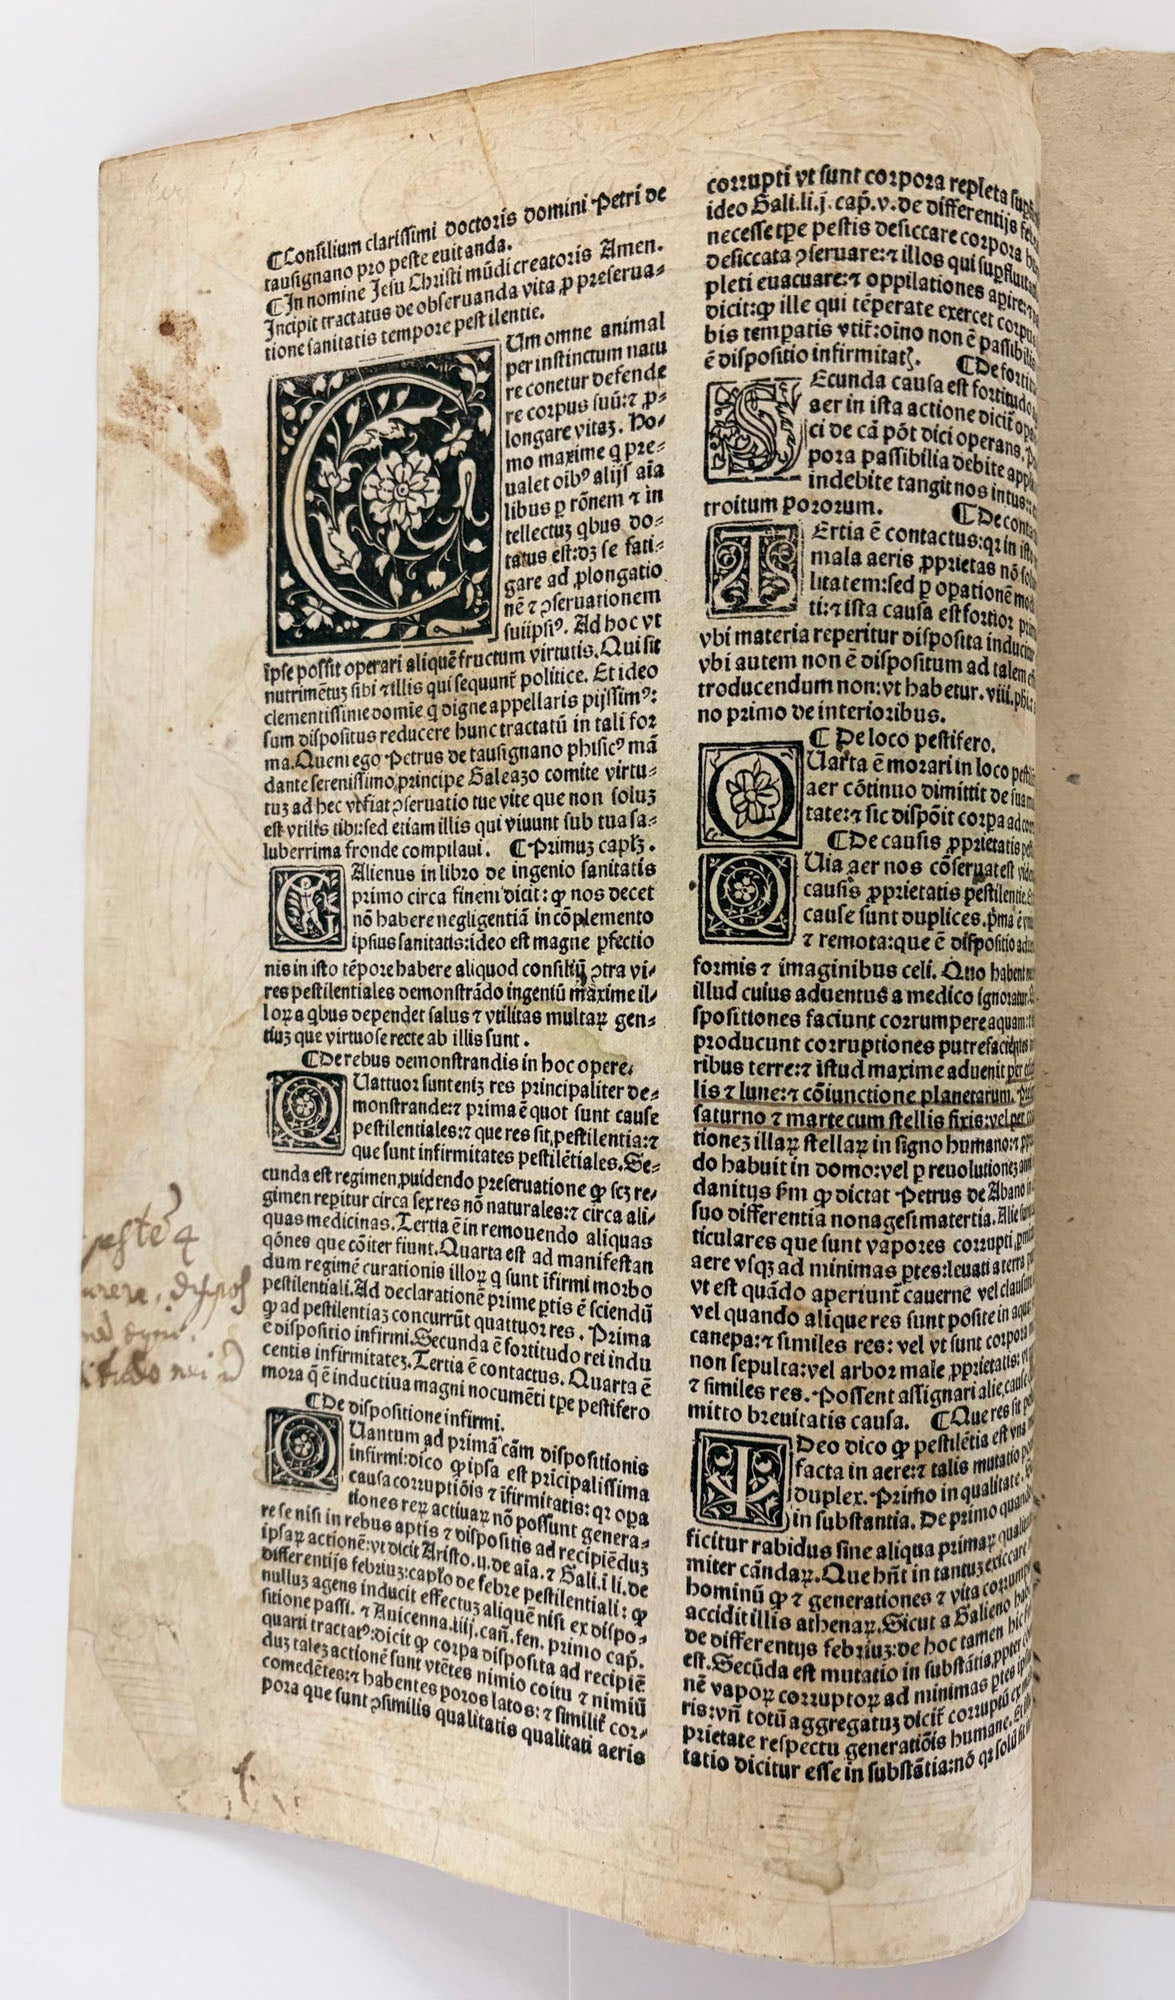 ¶Consilium clarissimi doctoris domini Petri de
tausignano pro peste euitanda.
¶In nomine Jesu Christi mūdi creatoris Amen.
Incipit tractatus de obseruanda vita ꝓ p̄serua⸗
tione sanitatis tempore pestilentie.
CUm omne animal
per instinctum natu
re conetur defende
re corpus suū:⁊ ꝓ⸗
longare vitaȝ. Ho⸗
mo maxime q̄ pre⸗
ualet oībꝰ alijs aīa
libus ꝑ rōnem ⁊ in
tellectuȝ qbus do⸗
tatus est:dȝ se fati⸗
gare ad ꝓlongatio
nē ⁊ ꝯseruationem
suiipsiꝰ. Ad hoc vt
ipse possit operari aliquē fructum virtutis. Qui sit
nutrimētuȝ sibi ⁊ illis qui sequunt̄ politice. Et ideo
clementissime domīe q̄ digne appellaris pijssimꝰ:
sum dispositus reducere hunc tractatū in tali for
ma. Quem ego Petrus de tausignano phisicꝰ mā
dante serenissimo principe Galeazo comite virtu⸗
tuȝ ad hec vt fiat ꝯseruatio tue vite que non soluȝ
est vtilis tibi:sed etiam illis qui viuunt sub tua sa⸗
luberrima fronde compilaui. ¶Primuȝ capl̄ȝ.
GAlienus in libro de ingenio sanitatis
primo circa finem dicit: ꝙ nos decet
nō habere negligentiā in cōplemento
ipsius sanitatis:ideo est magne ꝑfectio
nis in isto tēpore habere aliquod consiliū ꝯtra vi⸗
res pestilentiales demonstrādo ingeniū maxime il⸗
loꝝ a qbus dependet salus ⁊ vtilitas multaꝝ gen⸗
tiuȝ que virtuose recte ab illis sunt.
¶De rebus demonstrandis in hoc opere.
QUattuor sunt eniȝ res principaliter de⸗
monstrande:⁊ prima ē quot sunt cause
pestilentiales:⁊ que res sit pestilentia:⁊
que sunt infirmitates pestilētiales. Se⸗
cunda est regimen ꝓuidendo preseruatione ꝙ scȝ re⸗
gimen reꝑitur circa sex res nō naturales:⁊ circa ali⸗
quas medicinas. Tertia ē in remouendo aliquas
q̄ones que cōiter fiunt. Quarta est ad manifestan
dum regimē curationis illoꝝ q̄ sunt īfirmi morbo
pestilentiali. Ad declarationē prime ꝑtis ē sciendū
ꝙ ad pestilentiaȝ concurrūt quattuor res. Prima
ē dispositio infirmi. Secunda ē fortitudo rei indu
centis infirmitateȝ. Tertia ē contactus. Quarta ē
mora q̄ ē inductiua magni nocumēti tꝑe pestifero
¶De dispositione infirmi.
QUantum ad primā cām dispositionis
infirmi:dico ꝙ ipsa est prīcipalissima
causa corruptiōis ⁊ īfirmitatis: qꝛ opa
tiones reꝝ actiuaꝝ nō possunt genera⸗
re se nisi in rebus aptis ⁊ dispositis ad recipiēduȝ
ipsaꝝ actionē:vt dicit Aristo. ii. de aīa. ⁊ Gali. i li. de
differentijs febriuȝ:capl̄o de febre pestilentiali: ꝙ
nulluȝ agens inducit effectuȝ aliquē nisi ex dispo⸗
sitione passi. ⁊ Auicenna. iiij. cañ. fen. primo cap̄.
quarti tractatꝰ:dicit ꝙ corpa disposita ad recipiē
duȝ taleȝ actionē sunt vtētes nimio coitu ⁊ nimiū
comedētes:⁊ habentes poros latos: ⁊ similiť cor⸗
pora que sunt ꝯsimilis qualitatis qualitati aeris
corrupti vt sunt corpora repleta
ideo Gali. li. j. cap̄. v. de differentijs
necesse tꝑe pestis desiccare corpora
desiccata ꝯseruare:⁊ illos qui
pleti euacuare:⁊ oppilationes aꝑire:
dicit:ꝙ ille qui tēperate exercet
bis tempatis vtit̄:oīno non ē passibilis
ē dispositio infirmitatꝭ. ¶De
SEcunda causa est fortitudo
aer in ista actione dicit̄
ci de cā pōt dici operans.
pora passibilia debite
indebite tangit nos intus:
troitum pororum. ¶De
TErtia ē contactus:qꝛ in
mala aeris ꝓprietas nō
litatem:sed ꝑ opationē
ti:⁊ ista causa est fortior
vbi materia reperitur disposita
vbi autem non ē dispositum ad talem
troducendum non:vt habetur. viii.
no primo de interioribus.
¶De loco pestifero.
QUarta ē morari in loco
aer cōtinuo dimittit de sua
tate:⁊ sic dispōit corpa ad
¶De causis ꝓprietatis
QUia aer nos cōseruat est
causis ꝓprietatis pestilentie.
cause sunt duplices. p̄ma ē
⁊ remota:que ē dispositio
formis ⁊ imaginibus celi. Quo
illud cuius aduentus a medico ignoratur.
spositiones faciunt corrumpere aquam:
producunt corruptiones putrefaciētes
ribus terre:⁊ istud maxime aduenit per
lis ⁊ lune:⁊ cōiunctione planetarum.
saturno ⁊ marte cum stellis fixis:vel per
tioneȝ illaꝝ stellaꝝ in signo humano:⁊
do habuit in domo:vel ꝑ reuolutioneȝ
danitijs ẜm ꝙ dictat Petrus de Abano
suo differentia nonagesima tertia. Alie
ticulares que sunt vapores corrupti
aere vsqȝ ad minimas ꝑtes:leuati a terra
vt est quādo aperiunt cauerne vel
vel quando alique res sunt posite in
canepa:⁊ similes res: vel vt sunt corpora
non sepulta:vel arbor male ꝓprietatis:
⁊ similes res. Possent assignari alie
mitto breuitatis causa. ¶Que res sit
IDeo dico ꝙ pestilētia est
facta in aere:⁊ talis mutatio
duplex. Primo in qualitate.
in substantia. De primo
ficitur rabidus sine aliqua primaꝝ
miter cāndaꝝ. Que hn̄t in tantuȝ
hominū ꝙ ⁊ generationes ⁊ vita
accidit illis athenaꝝ. Sicut a Galieno
de differentijs febriuȝ:de hoc tamen
est. Secūda est mutatio in substātia
nē vapoꝝ corruptoꝝ ad minimas
ris:vn̄ totū aggregatuȝ dicit̄ corruptū
prietate respectu generatiōis humane.
tatio dicitur esse in substātia:nō qꝛ